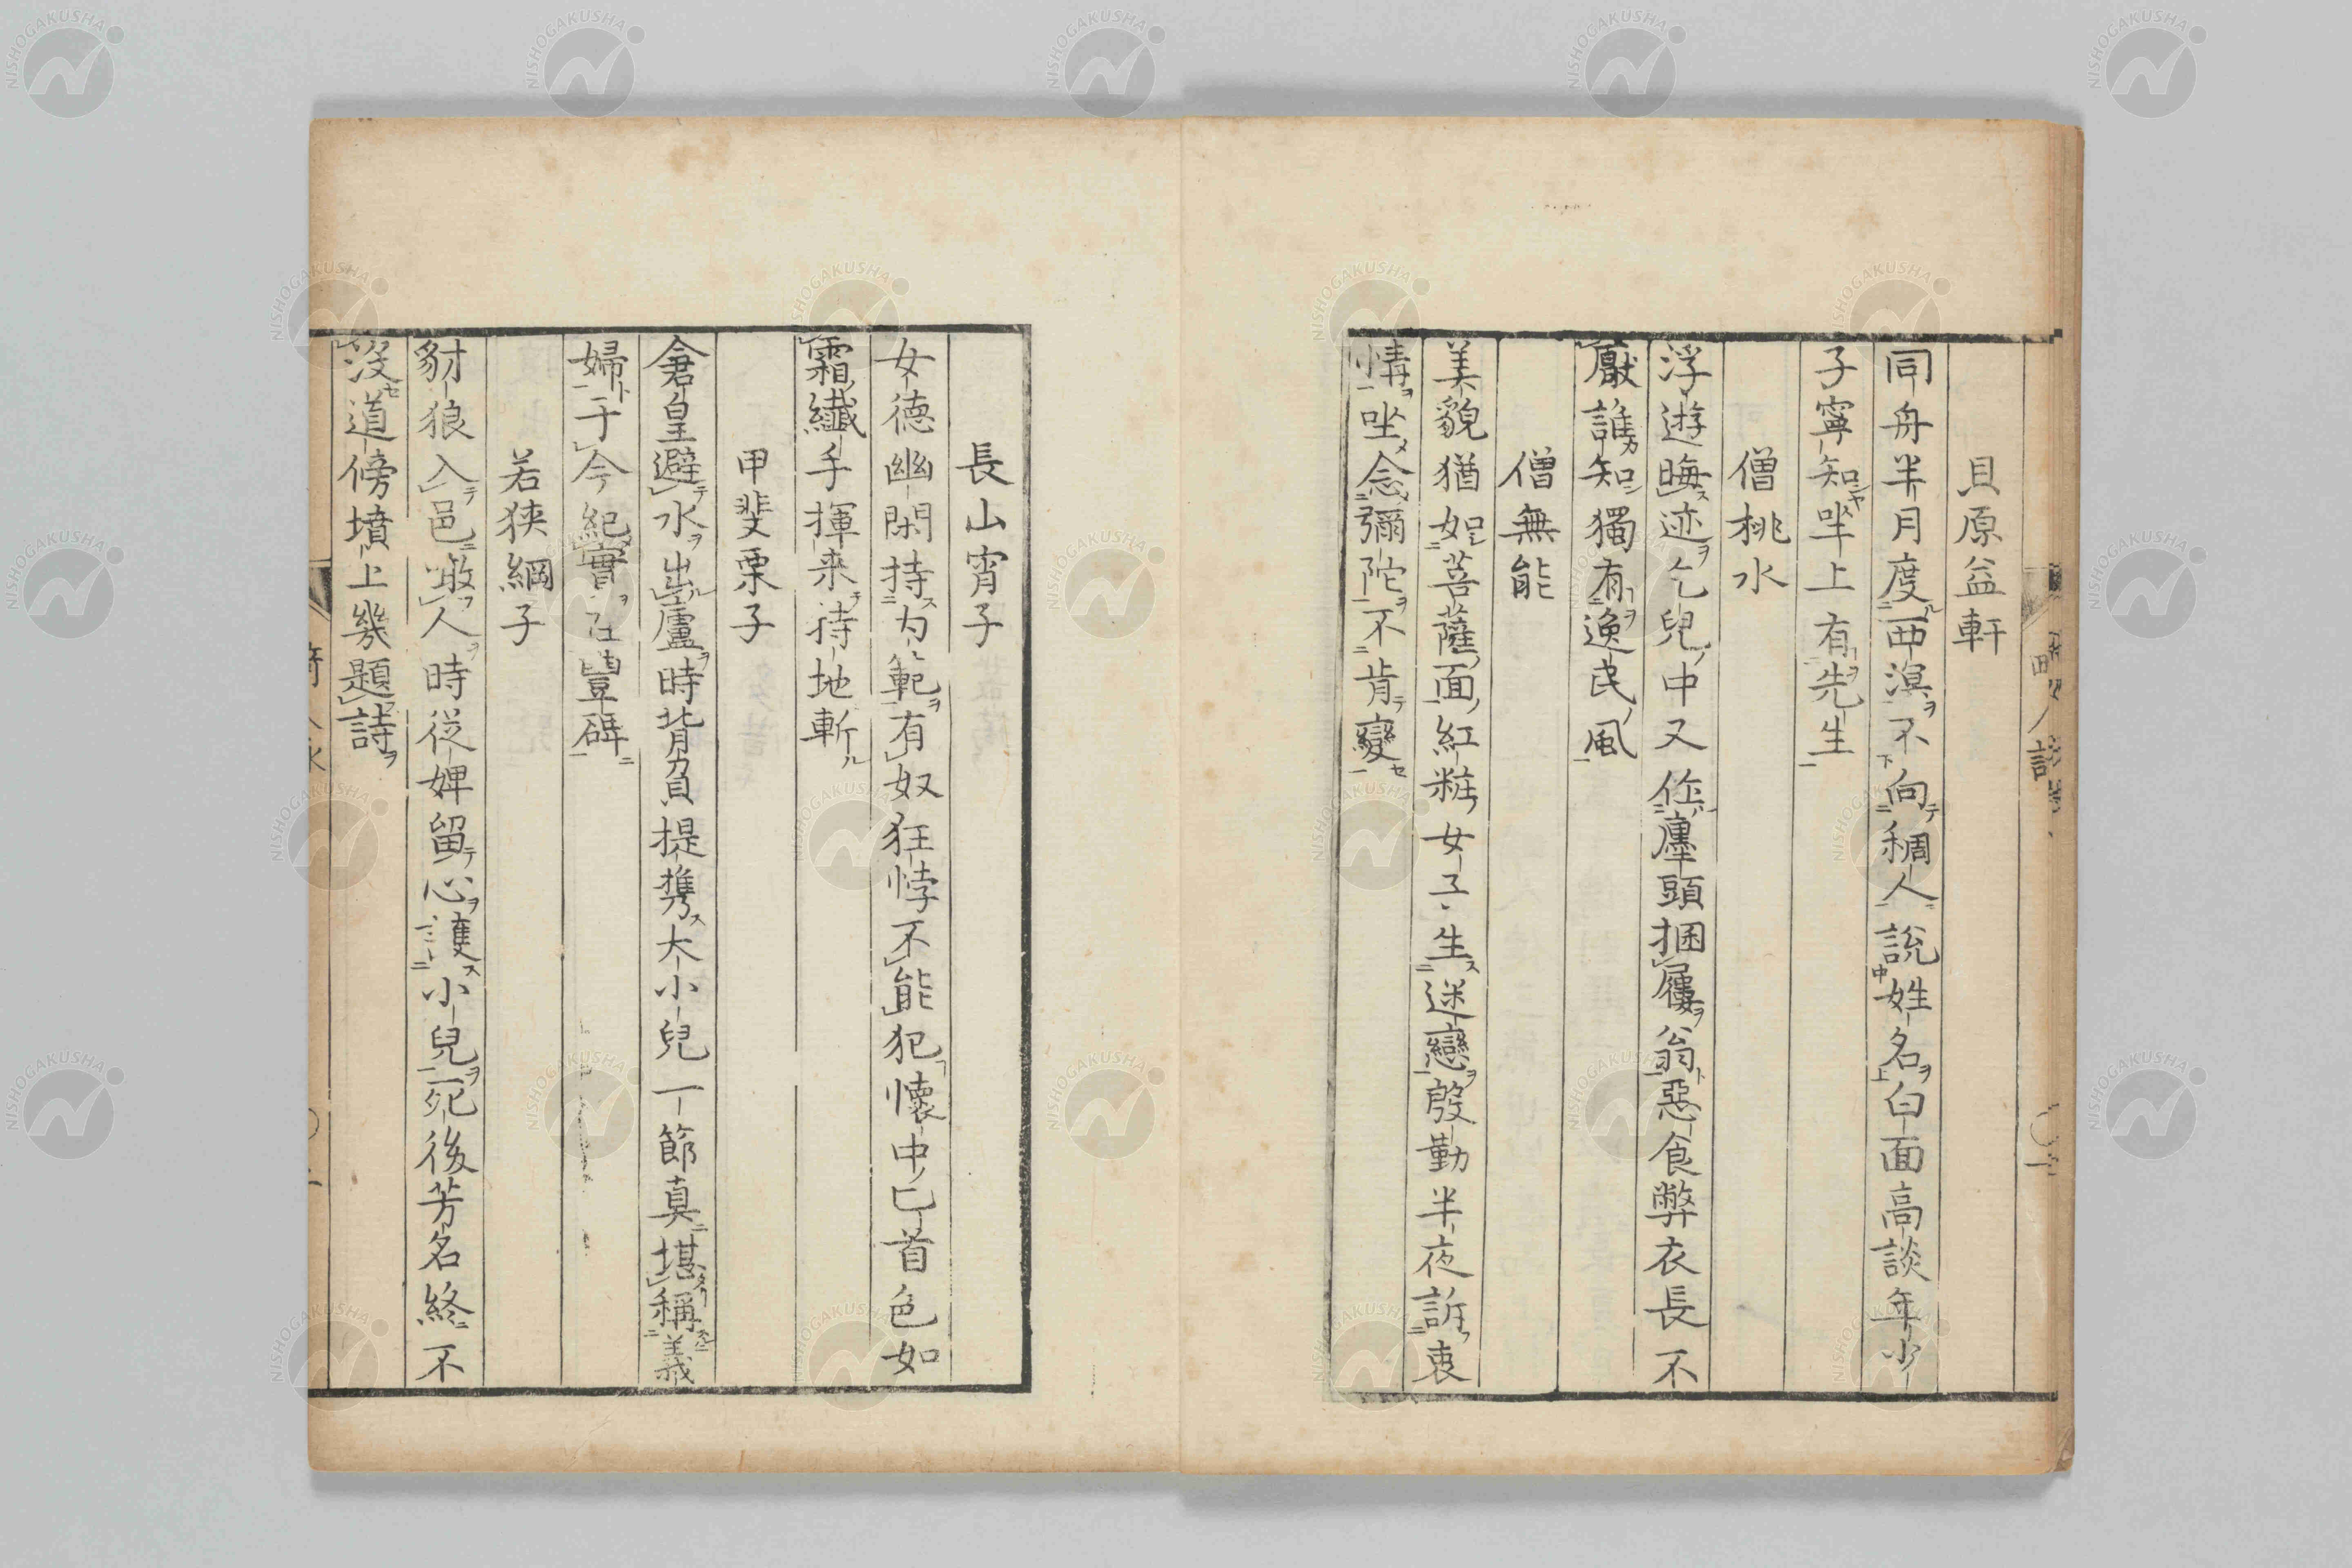 貝原益軒
同舟半月度西溟不向稠人說姓名白面高談年少
子寧知坐上有先生
僧桃水
浮遊晦迹乞兒中又作廛頭捆屨翁惡食弊衣長不
厭誰知獨有逸民風
僧無能
美貌猶如菩薩面紅粧女子生迷戀殷勤半夜訴衷
情坐念彌陀不肯變
長山宵子
女德幽閑持為範有奴狂悖不能犯懷中匕首色如
霜纖手揮来待地斬
甲斐栗子
倉皇避水出廬時背負提携大小兒一節真堪稱義
婦于今紀實豎碑
若狹綱子
豺狼入邑噉人時從婢留心護小兒死後芳名終不
沒道傍墳上幾題詩
NISHOGAKUSHA